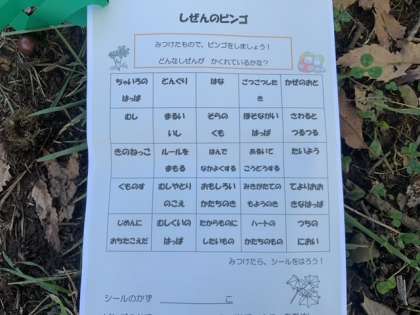 しぜんのビンゴ
みつけたもので、ビンゴをしましょう！
どんなしぜんが かくれているかな？
ちゃいろの はっぱ
どんぐり
はな
ごつごつした き
かぜのおと
むし
まるい いし
そらの くも
ほそながい はっぱ
さわると つるつる
きのねっこ
ルールを まもる
はんで なかよくする
あるいて こうどうする
たいよう
くものす
むしやとり のこえ
おもしろい かたちのき
みきがたての もようのき
てよりおお きなはっぱ
じめんに おちたこえだ
むしくいの はっぱ
たからものに したいもの
ハートの かたちのもの
つちの におい
みつけたら、シールをはろう！
シールのかず こ